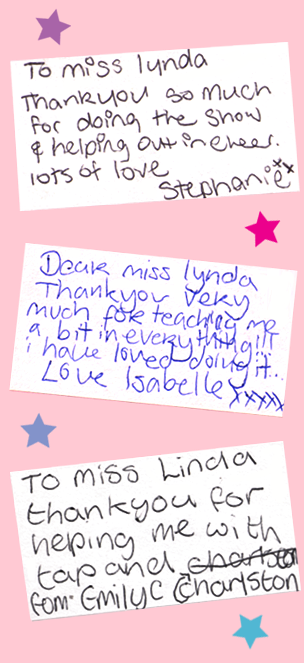 To miss lynda
Thankyou so much
for doing the show
& helping out in cheer.
lots of love
Stephanie xx
Dear miss lynda
Thankyou very
much for teaching me
a bit in everything!!!
i have loved doing it...
Love Isabelle xxxxx
To miss Linda
thankyou for
heping me with
tap and charlston
fom Emily C Charlston